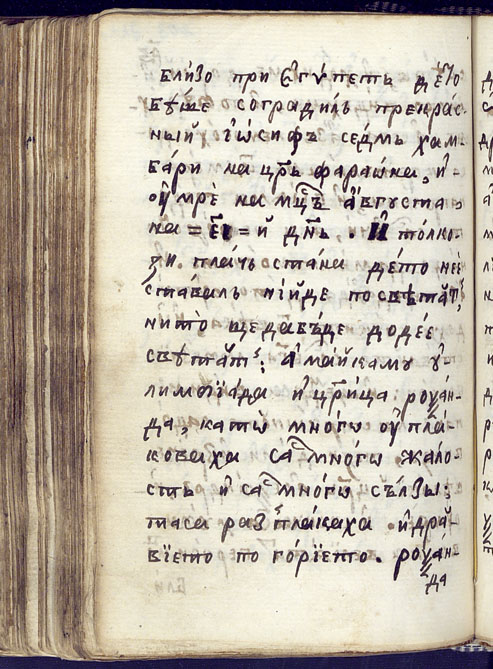 близо при єгѵ́петь де́то
бѣ́ше соградиль прекра́с
ный іѡ́сифъ се́дмь хам-
бари на цр҃ь фараѡ́на, и҆-
оу҆мрѐ на мцⷭ҇ъ а҆́вгуста,
на =є҃і= й дн҃ь . И҆ то́лко-
зи пла́чь стана де́то нее́
ставаль ні́йде по свѣтатⸯ,
нито̀ щедавъде додеѐ
свѣтатⸯ: а҆ ма́йкаму у҆
лимпїа́да и҆ цр҃и́ца роѯа́н-
да, катѡ̀ мно́гѡ оу҆пла́-
коваха са мно́гѡ жа́ло-
сть и҆ са мно́гѡ съ́лзы:
таса разⸯпла́каха и҆ дра́-
вїето по го́рїето. роѯа́н-
да